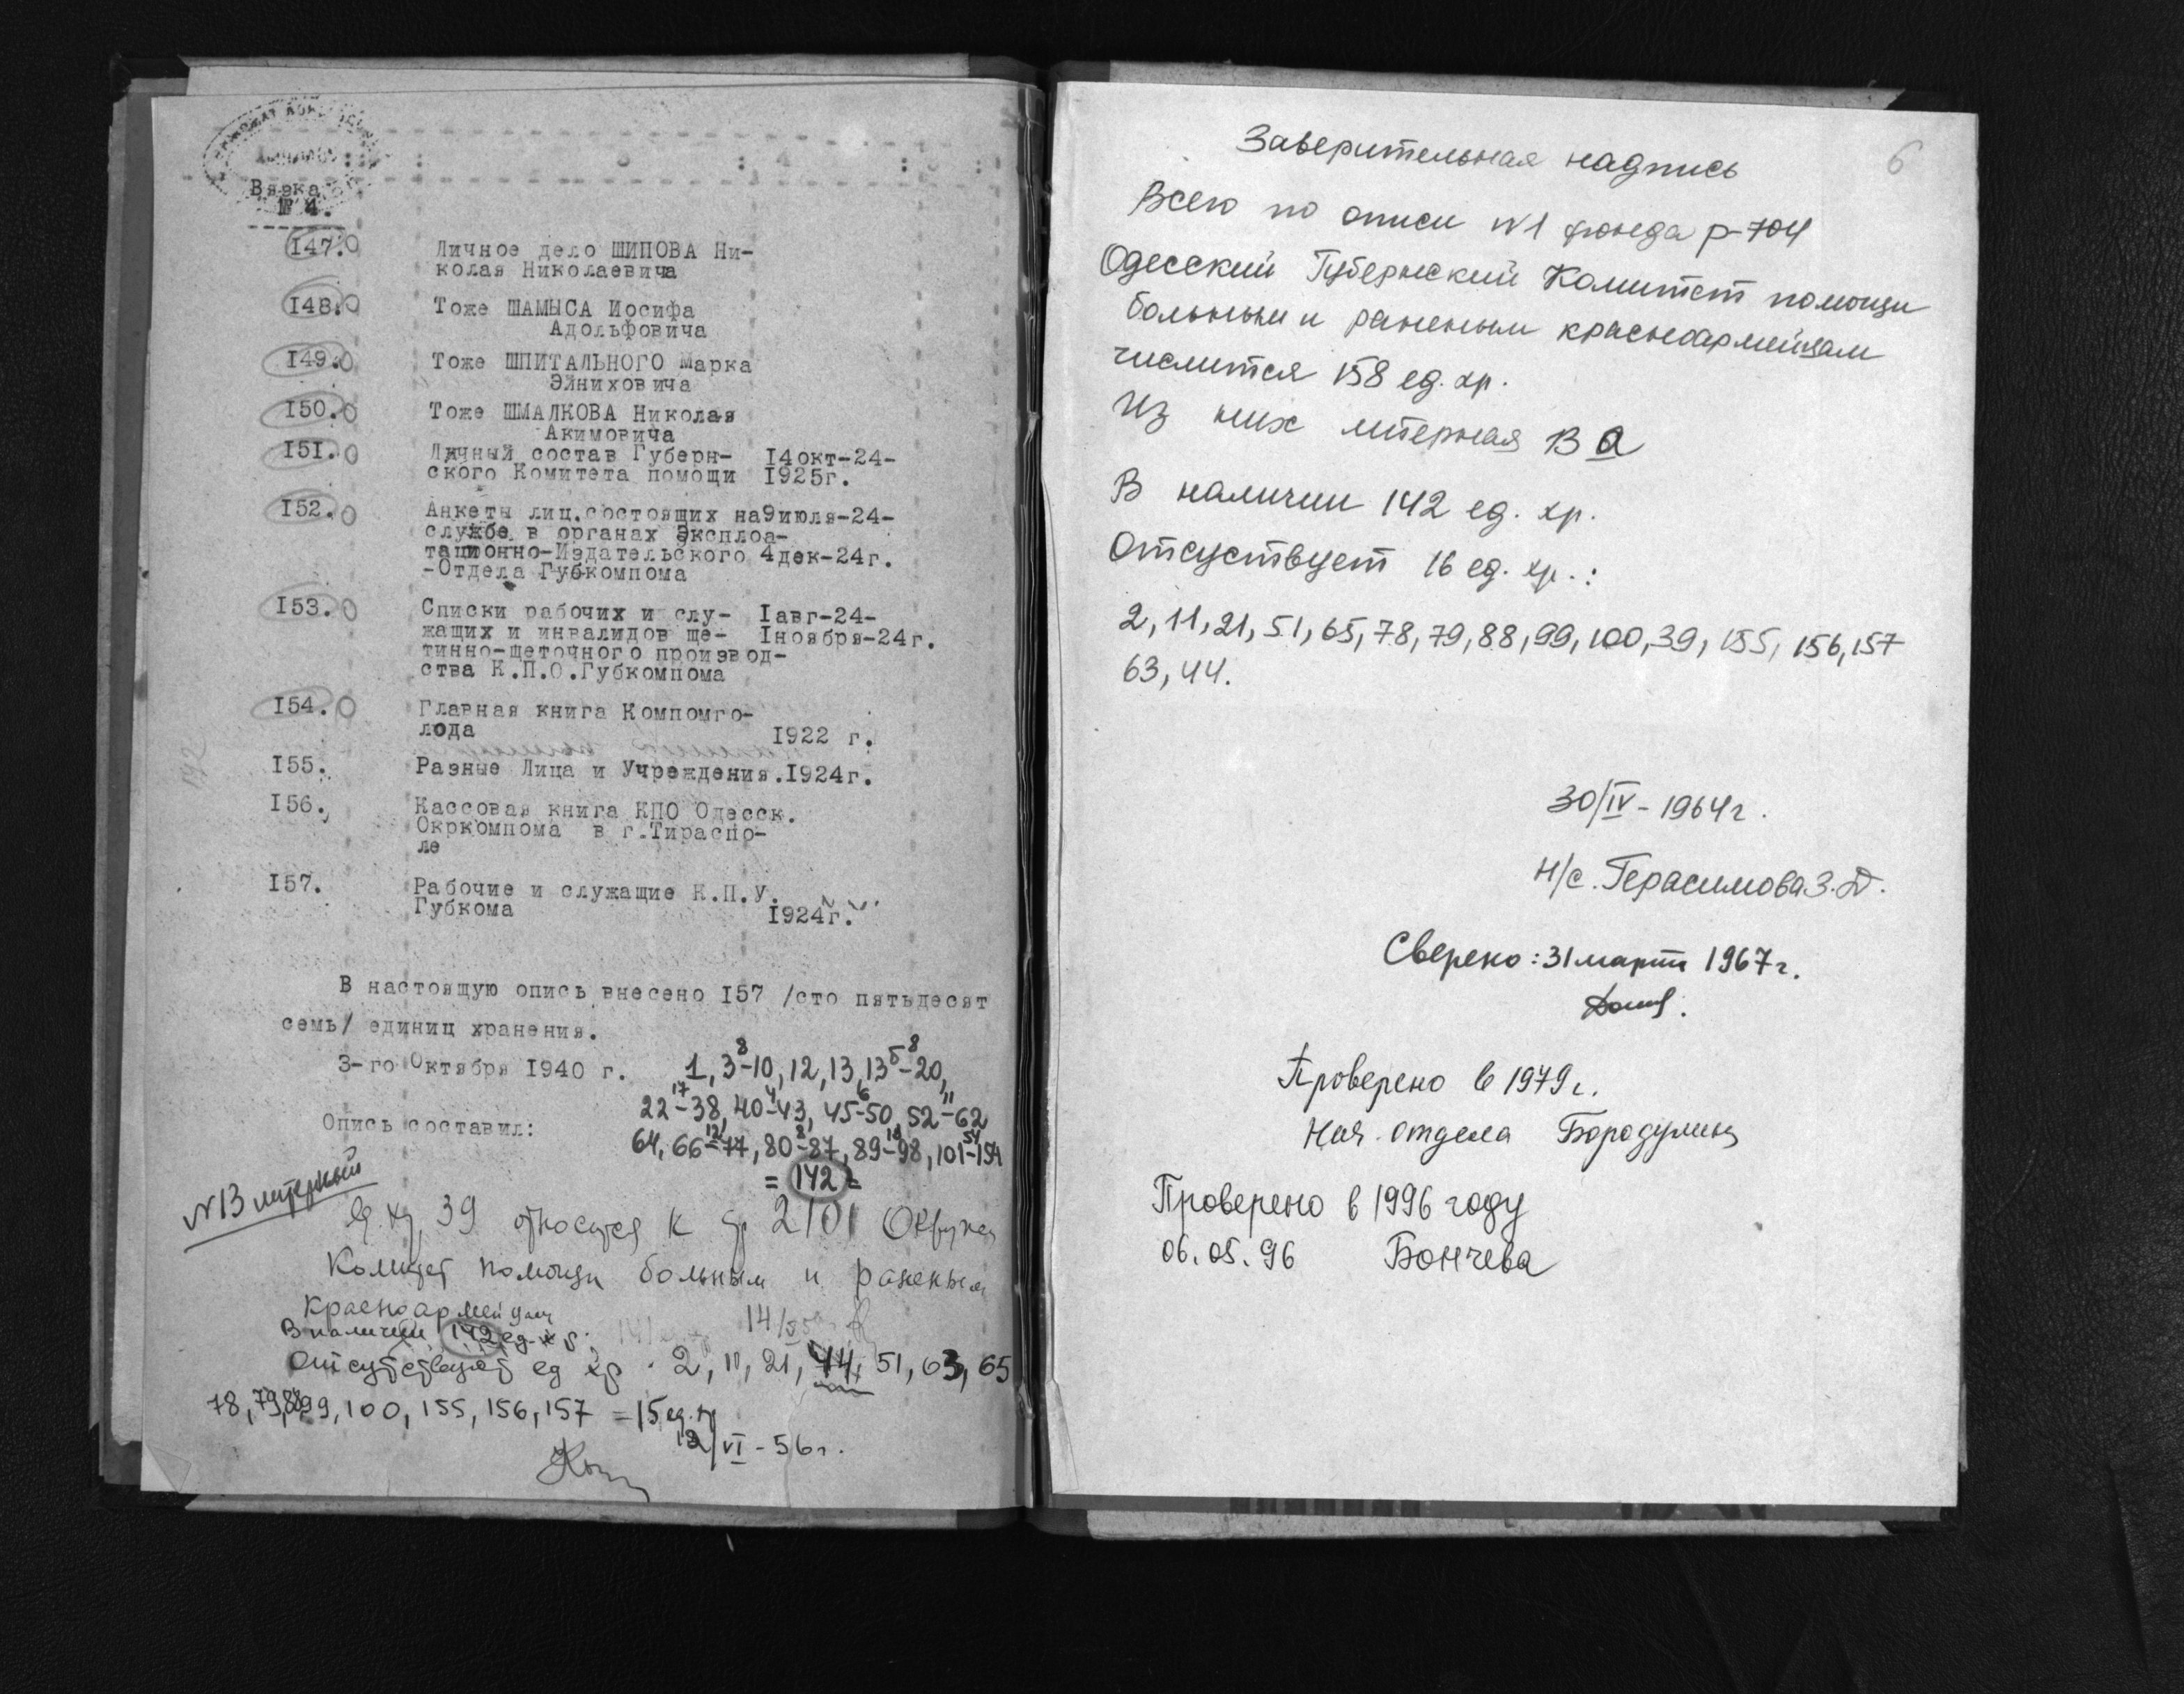 Вязка
№ 4.
147. Личное дело ШИПОВА Ни-
колая Николаевича
148. Тоже ШАМЫСА Иосифа
Адольфовича
149. Тоже ШПИТАЛЬНОГО Марка
Эйниховича
150. Тоже ШМАЛКОВА Николая
Акимовича
151. Личный состав Губерн- 14окт-24-
ского Комитета помощи 1925г.
152. Анкеты лиц.состоящих на 9июля-24-
службе в органах Эксплоа-
тационно-Издательского 4дек-24г.
-Отдела Губкомпома
153. Списки рабочих и слу- 1авг-24-
жащих и инвалидов ще- 1ноября-24г.
тинно-щеточного производ-
ства К.П.О.Губкомпома
154. Главная книга Компомго-
лода 1922 г.
155. Разные Лица и Учреждения.1924г.
156. Кассовая книга КПО Одесск.
Окркомпома в г.Тираспо-
ле
157. Рабочие и служащие К.П.У.
Губкома 1924г.
142
В настоящую опись внесено 157 /сто пятьдесят
семь/ единиц хранения.
3-го Октября 1940 г. 1, 3-10, 12, 13, 13б-20,
8 8
22-38, 40-43, 45-50, 52-62
17 4 6 11
Опись составил:
64, 66-77, 80-87, 89-98, 101-154
12 8 10 54
= 142 =
N13 литерный
Ед. хр. 39 относится к ф 2101 Окружн
Комитет помощи больным и раненым
красноармейцам
В наличии 142 ед. хр.
Отсутствуют ед хр. 2, 11, 21, 44, 51, 63, 65
78, 79, 88, 99, 100, 155, 156, 157 = 15 ед. хр
12/VI - 56г.
6
Заверительная надпись
Всего по описи N1 фонда р-704
Одесский Губернский Комитет помощи
больным и раненым красноармейцам
числится 158 ед. хр.
Из них литерная 13 а
В наличии 142 ед. хр.
Отсуствует 16 ед. хр.:
2, 11, 21, 51, 65, 78, 79, 88, 99, 100, 39, 155, 156, 157
63, 44.
30/IV - 1964г.
Н/с. Герасимова З.Д.
Сверено: 31 марта 1967г.
Проверено в 1979г.
Нач. отдела Бородулина
Проверено в 1996 году
06.05.96 Бончева